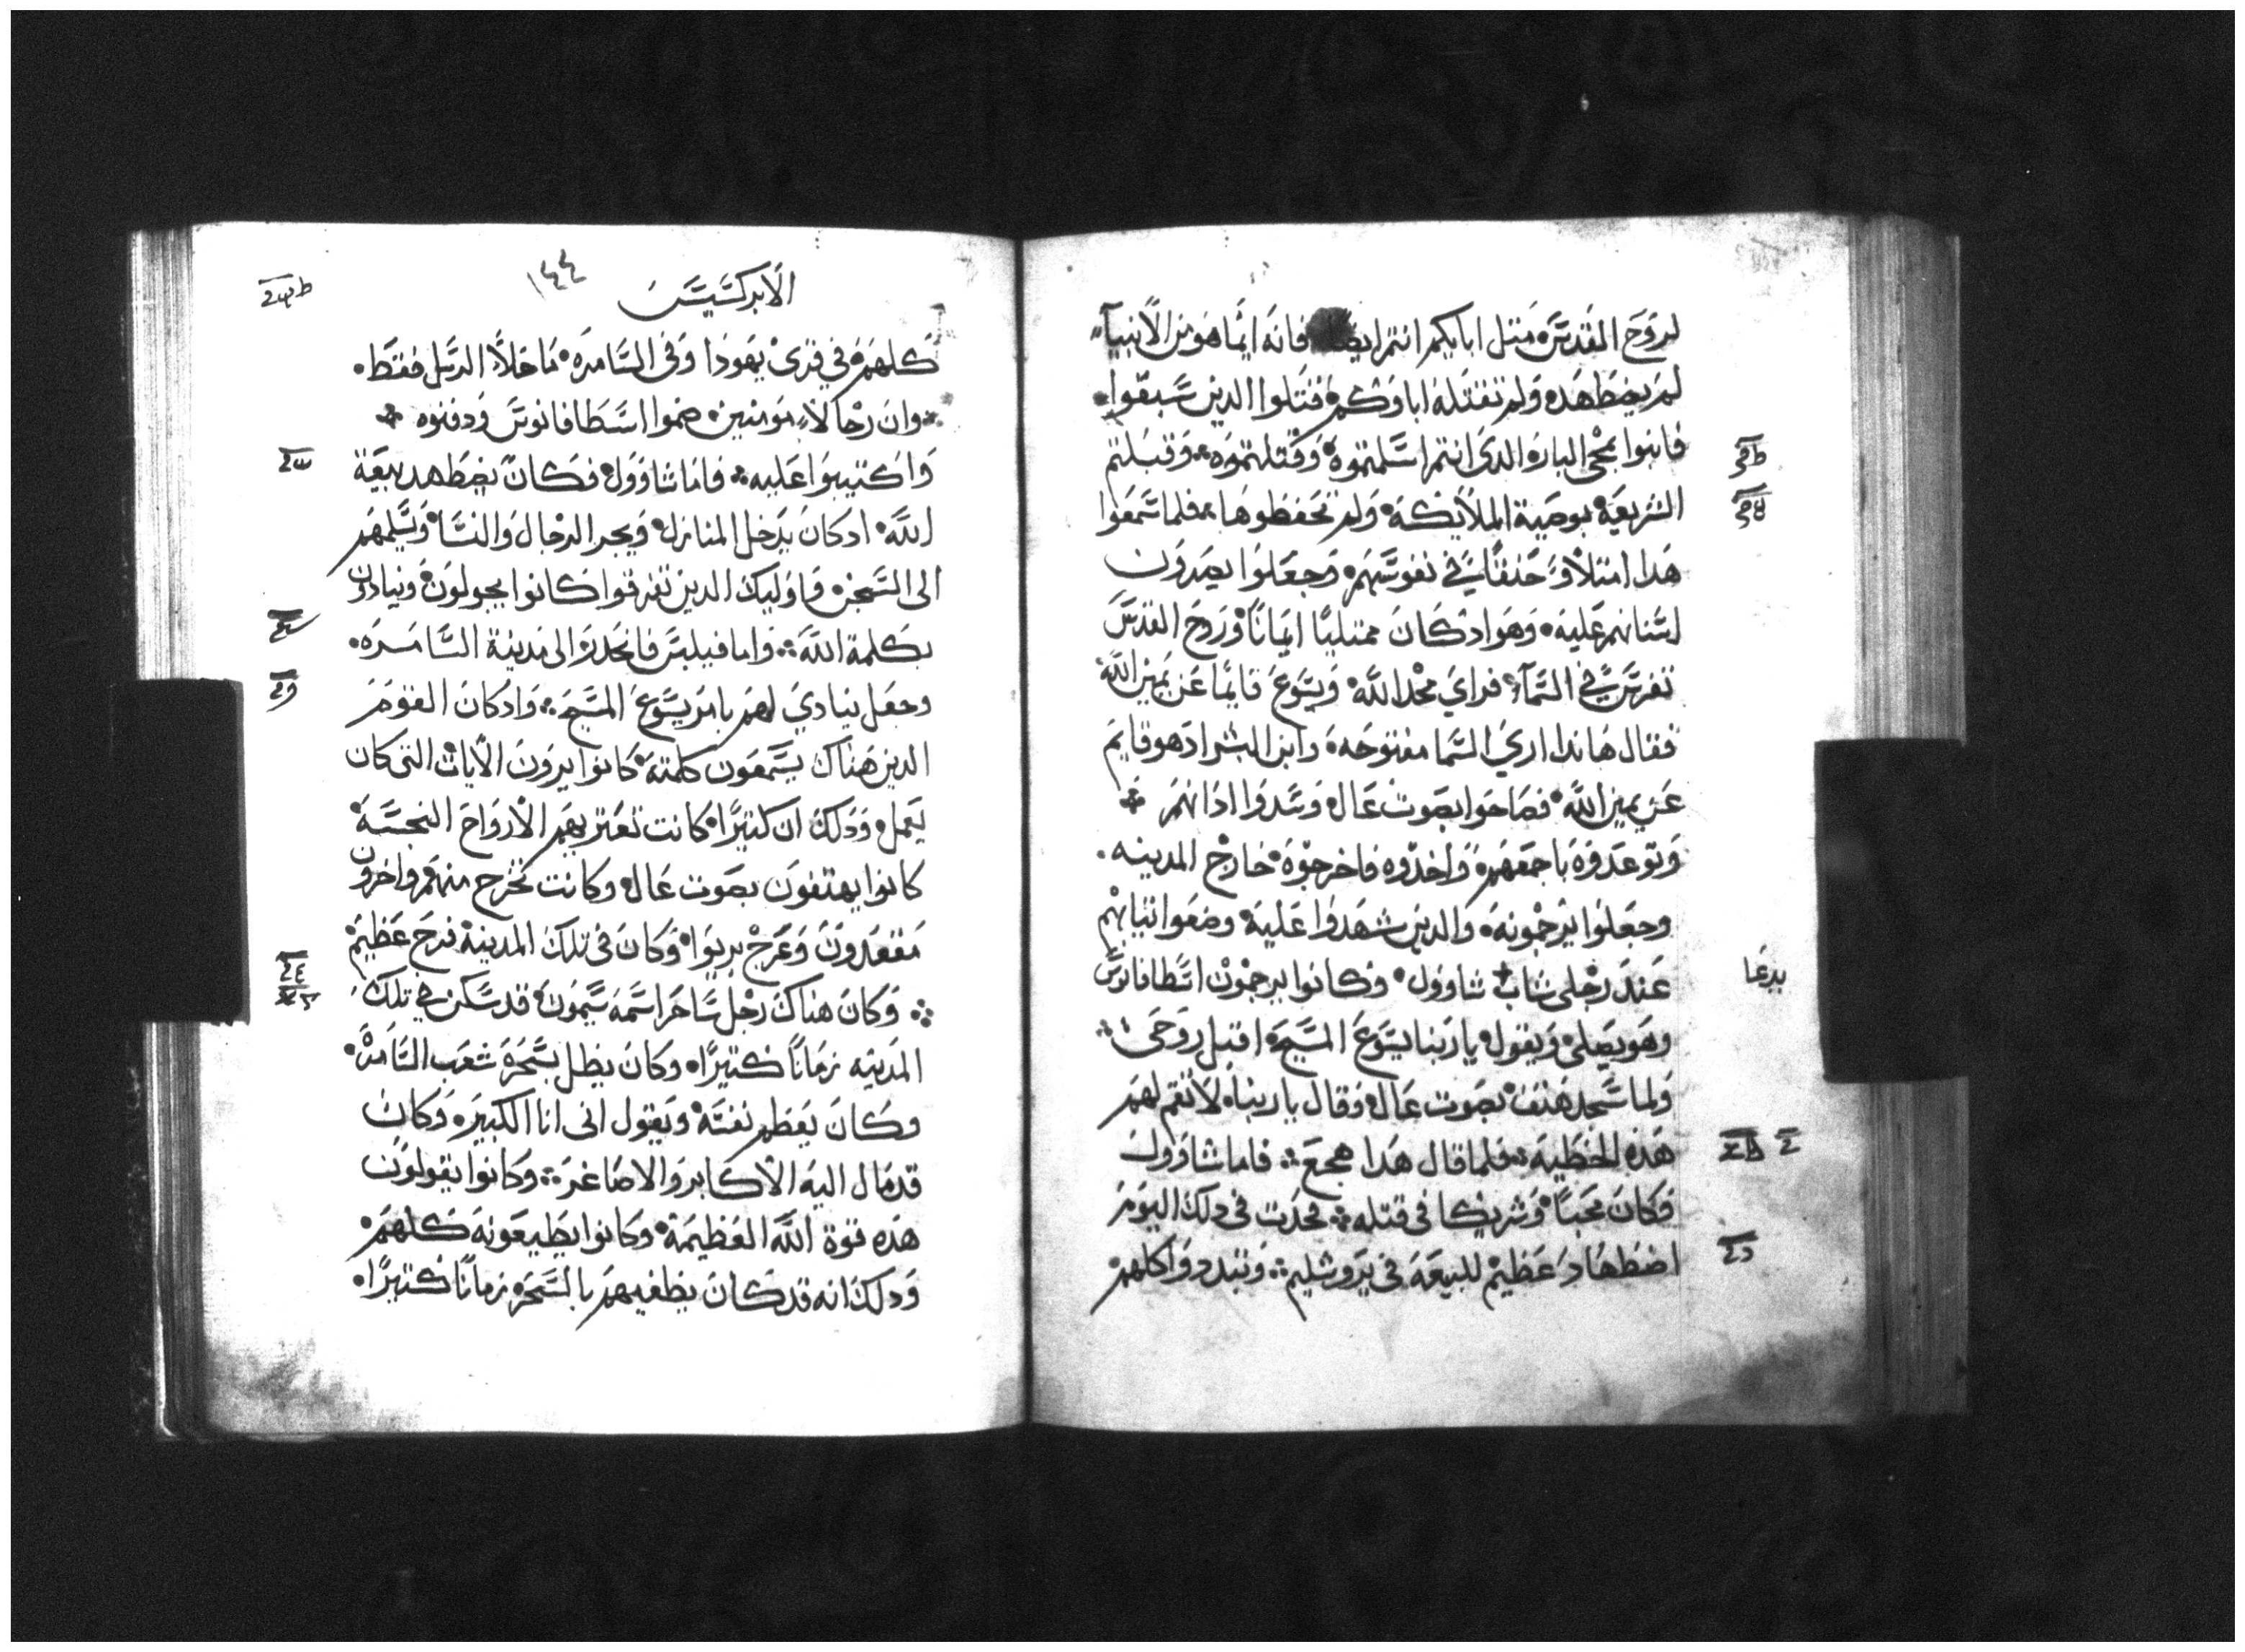 لروح القدس مثل ابايكم انتم ايضا فانه ايما هو من الانبيآ
لم يضطهده ولم تقتله اباوكم فقتلوا الدين سبقوا
فانبوا بمجى الباره الدى انتم اسلمتموه وقتلتموه وقبلتم
الشريعة بوصية الملايكة ولم تحفظوها فلما سمعوا
هدا امتلاو حنقا في نفوسهم وجعلوا يصرون
اسنانهم عليه وهو ادكان ممتليا ايمانا وروح القدس
تفرس في السمآ فراي مجد الله ويسوع قايما عن يمين الله
فقال هاندا اري السما مفتوحه وابن البشر ادهو قايم
عن يمين الله فصاحوا بصوت عال وسدوا ادانهم
وتوعدوه باجمعهم واخدوه فاخرجوه خارج المدينه
وجعلوا يرجمونه والدين شهدوا عليه وضعوا تيابهم
عند رجلى شاب شاوول وكانوا يرجمون اسطافانوس
يدعا
وهو يصلى ويقول يا ربنا يسوع المسيح اقبل روحى
ولما سجد هتف بصوت عال وقال يا رباه لا تقم لهم
هده الخطيه فلما قال هدا هجع فاما شاوول
فكان محبا وشريكا فى قتله فحدت فى دلك اليوم
اضطهاد عظيم للبيعة فى يروشليم وتبددوا كلهم
الابركسيس
١٤٤
كلهم في قرى يهودا وفى السامره ما خلا الرسل فقط
وان رجالا مومنين ضموا اسطافانوس ودفنوه
واكتيبوا عليه فاما شاوول فكان يضطهد بيعة
الله ادكان يدخل المنازل ويجر الرجال والنسا ويسلمهم
الى السجن واوليك الدين تفرقوا كانوا يجولون وينادون
بكلمة الله واما فيلبس فانحدر الى مدينة السامره
وجعل ينادي لهم بامر يسوع المسيح وادكان القوم
الدين هناك يسمعون كلمته كانوا يرون الايات التى كان
يعمل ودلك ان كتيرا كانت تعتريهم الارواح النجسة
كانوا يهتفون بصوت عال وكانت تخرج منهم واخرون
مقعدون وعرج بريوا وكان فى تلك المدينة فرح عظيم
وكان هناك رجل ساحر اسمه سيمون قد سكن في تلك
المدينه زمانا كتيرا وكان يظل بسحره شعب السامره
وكان يعظم نفسه ويقول انى انا الكبير وكان
قد مال اليه الاكابر والاصاغر وكانوا يقولون
هده قوة الله العظيمة وكانوا يطيعونه كلهم
ودلك انه قد كان يطغيهم بالسحره زمانا كتيرا